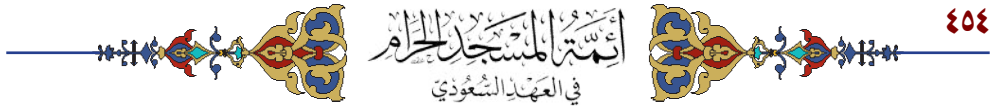 ٤٥٤
أئمة المسجد الحرام
في العهد السعودي